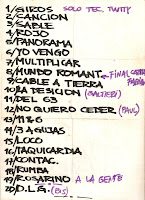 1/GIROS SOLO TEC. TWITY
2/CANCION
3/SABLE
4/ROJO
5/PANORAMA
6/YO VENGO
7/MULTIPLICAR
8/MUNDO ROMANT. FINAL CARTA
9/CABLE A TIERRA
10/LA DESICION (BALTIERI)
11/DEL 63
12/NO QUIERO CEDER (PAUL)
13/11 Y 6
14/3 AGUJAS
15/LOCO
16/TAQUICARDIA
17/CONTAC.
18/RUMBA
19/ROSARINO A LA GENTE
20/D.L.G. (BIS)